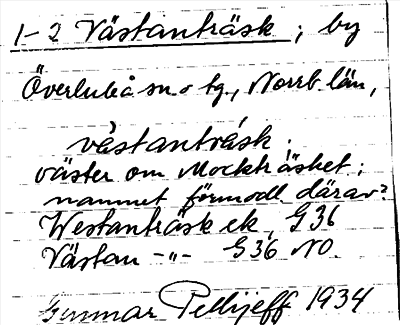 1-2 Västanträsk ; by
Överluleå sn o tg., Norrb. län,
västanträsk ;
väster om Mockträsket ;
namnet förmodl. därav?
Westanträsk ek, G36
Västan -"- G36 NO.
Gunnar Pellijeff 1934